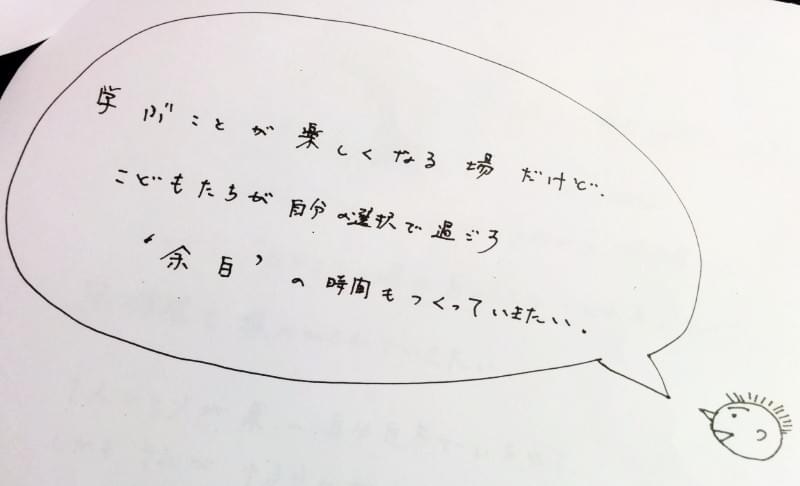 学ぶことが楽しくなる場だけど、
こどもたちが自分の選択で過ごろ
‘余白’の時間もつくっていきたい。